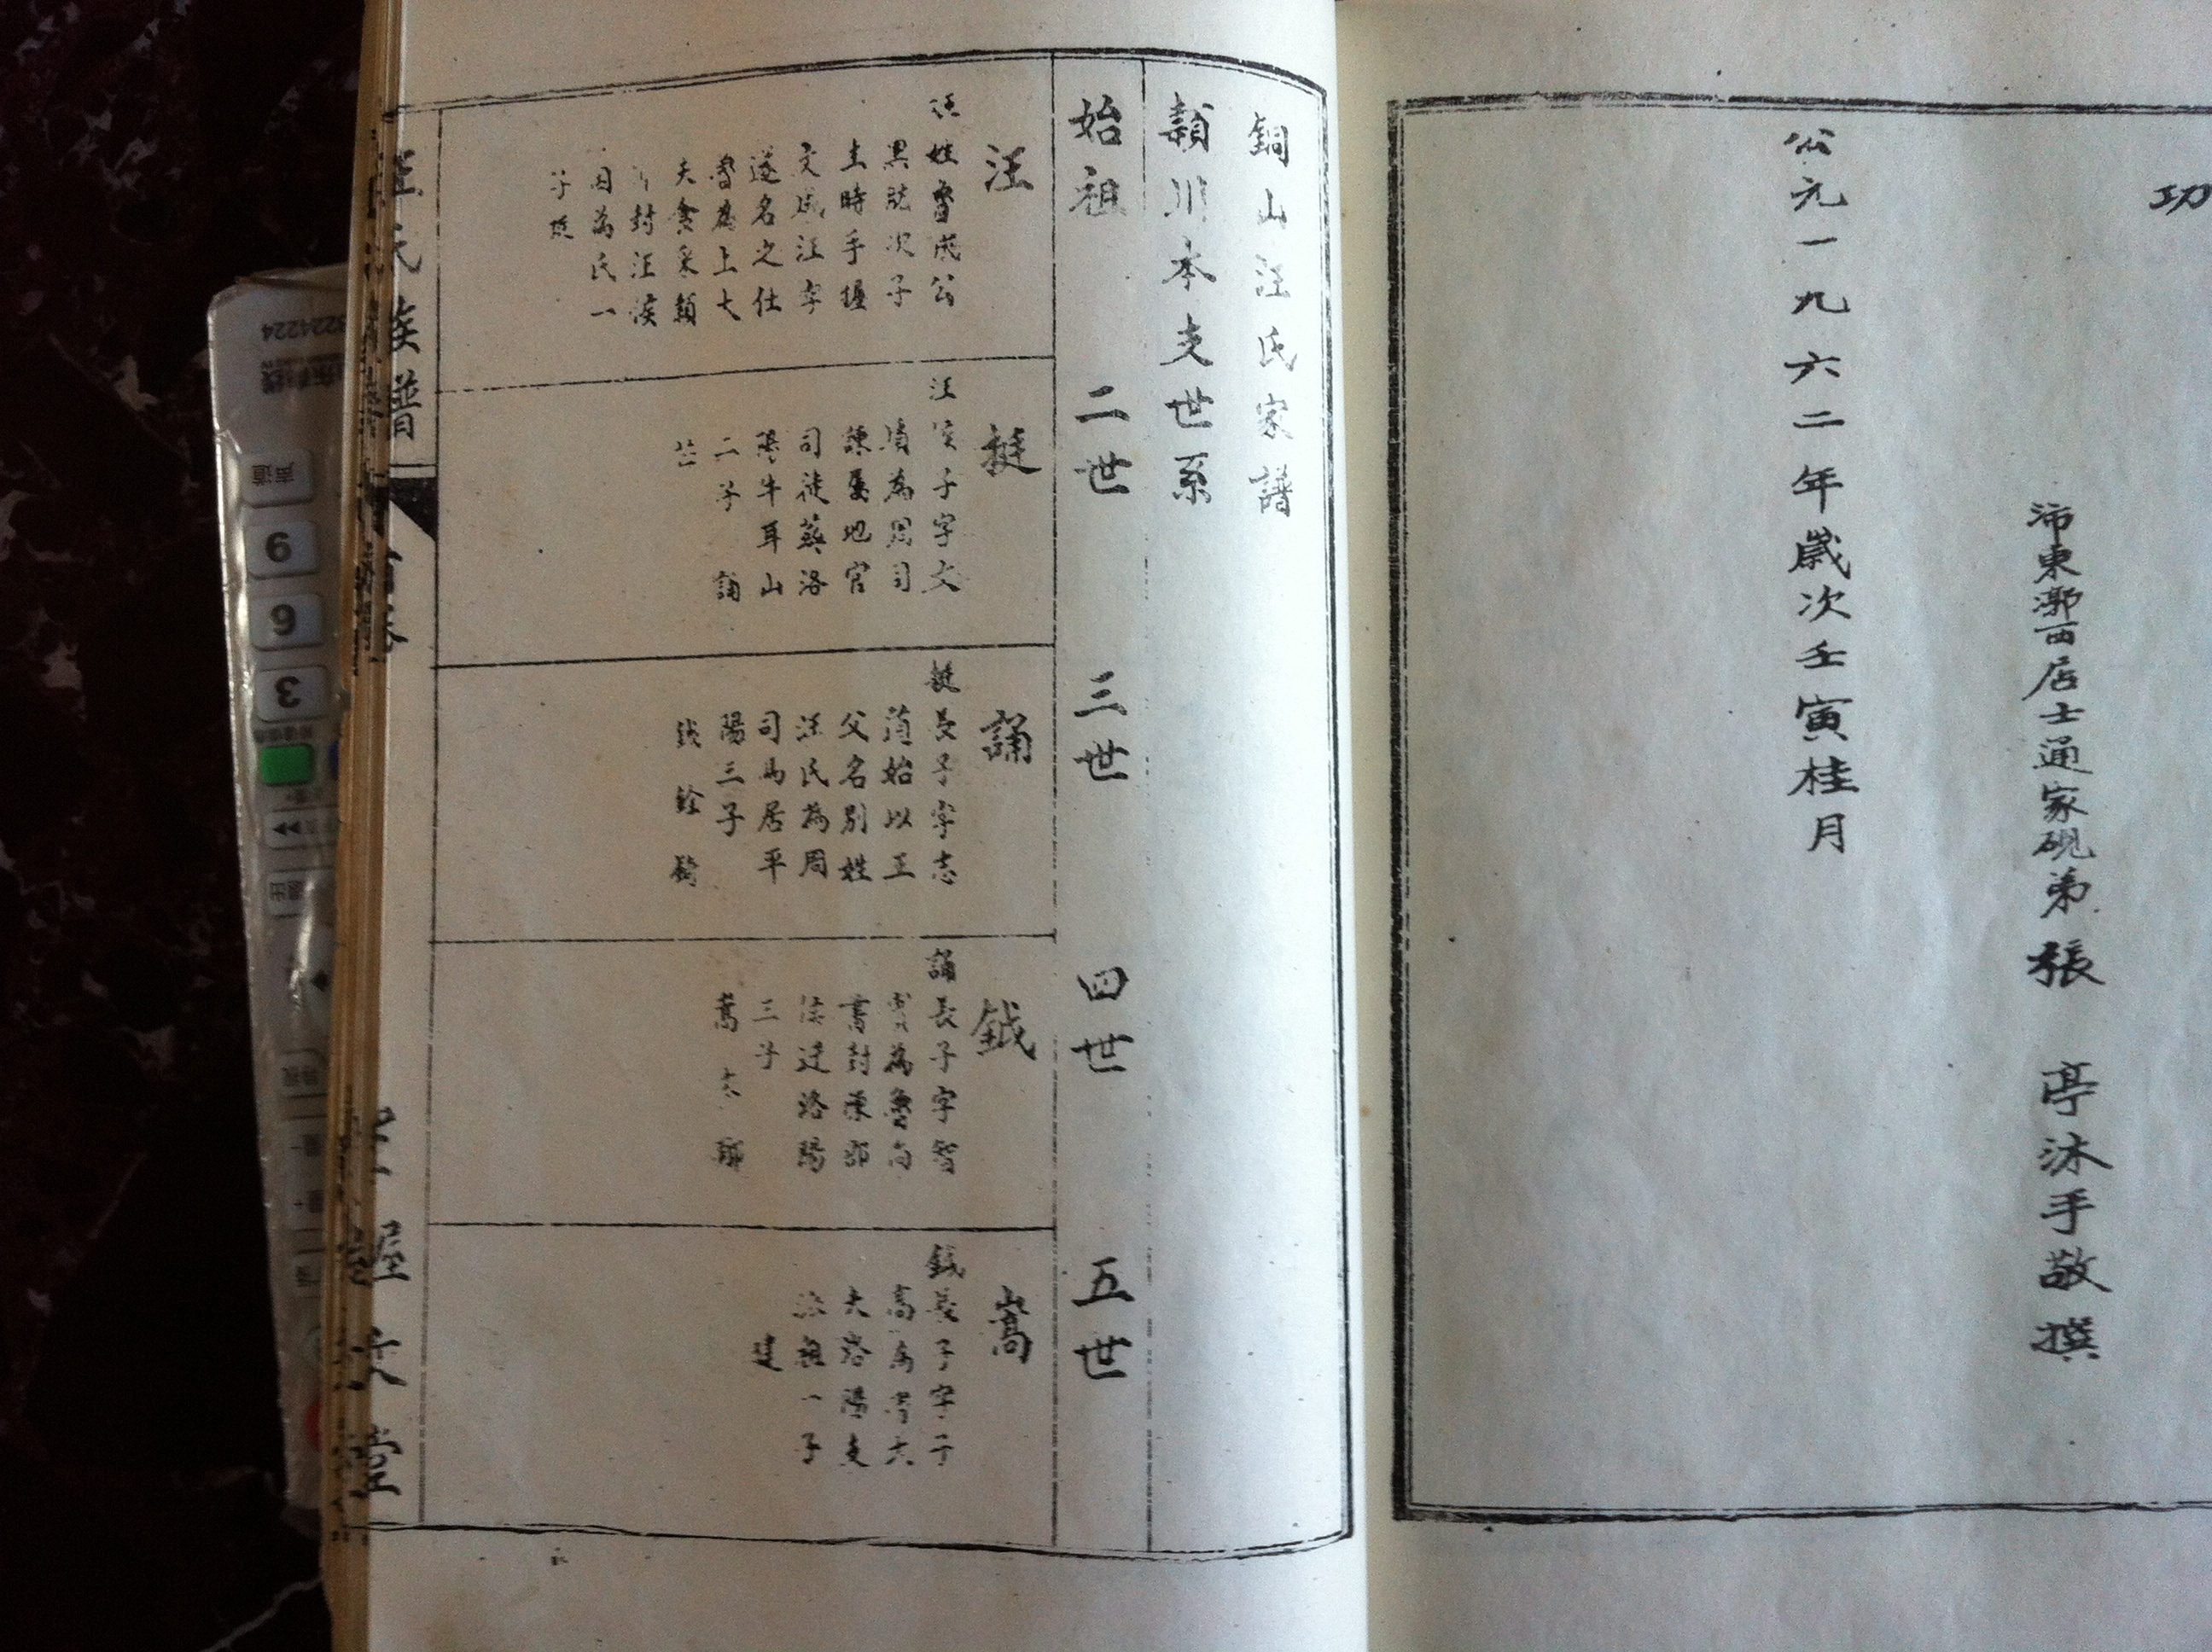 功
沛東郭西居士通家硯弟張 亭沐手敬撰
公元一九六二年歲次壬寅桂月
銅山汪氏家譜
潁川本支世系
始祖 二世 三世 四世 五世
汪
姓魯成公
黑肱次子
生時手握
文成汪字
遂名之仕
魯為上大
夫食采潁
封汪侯
因為氏一
子挺
挺
汪侯子字文
為周司
諫屬地官
司徒葬洛
陽牛耳山
二子 誦
誦
挺長子字志
道始以王
父名別姓
汪氏為周
司馬居平
陽三子
鉞 銓 錡
鉞
誦長子字智
為魯尚
書封
侯遷洛陽
三子
嵩
嵩
鉞長子字子
高為晉大
夫洛陽支
派祖一子
汪氏族譜
首卷
握文堂
9
6
3
声道